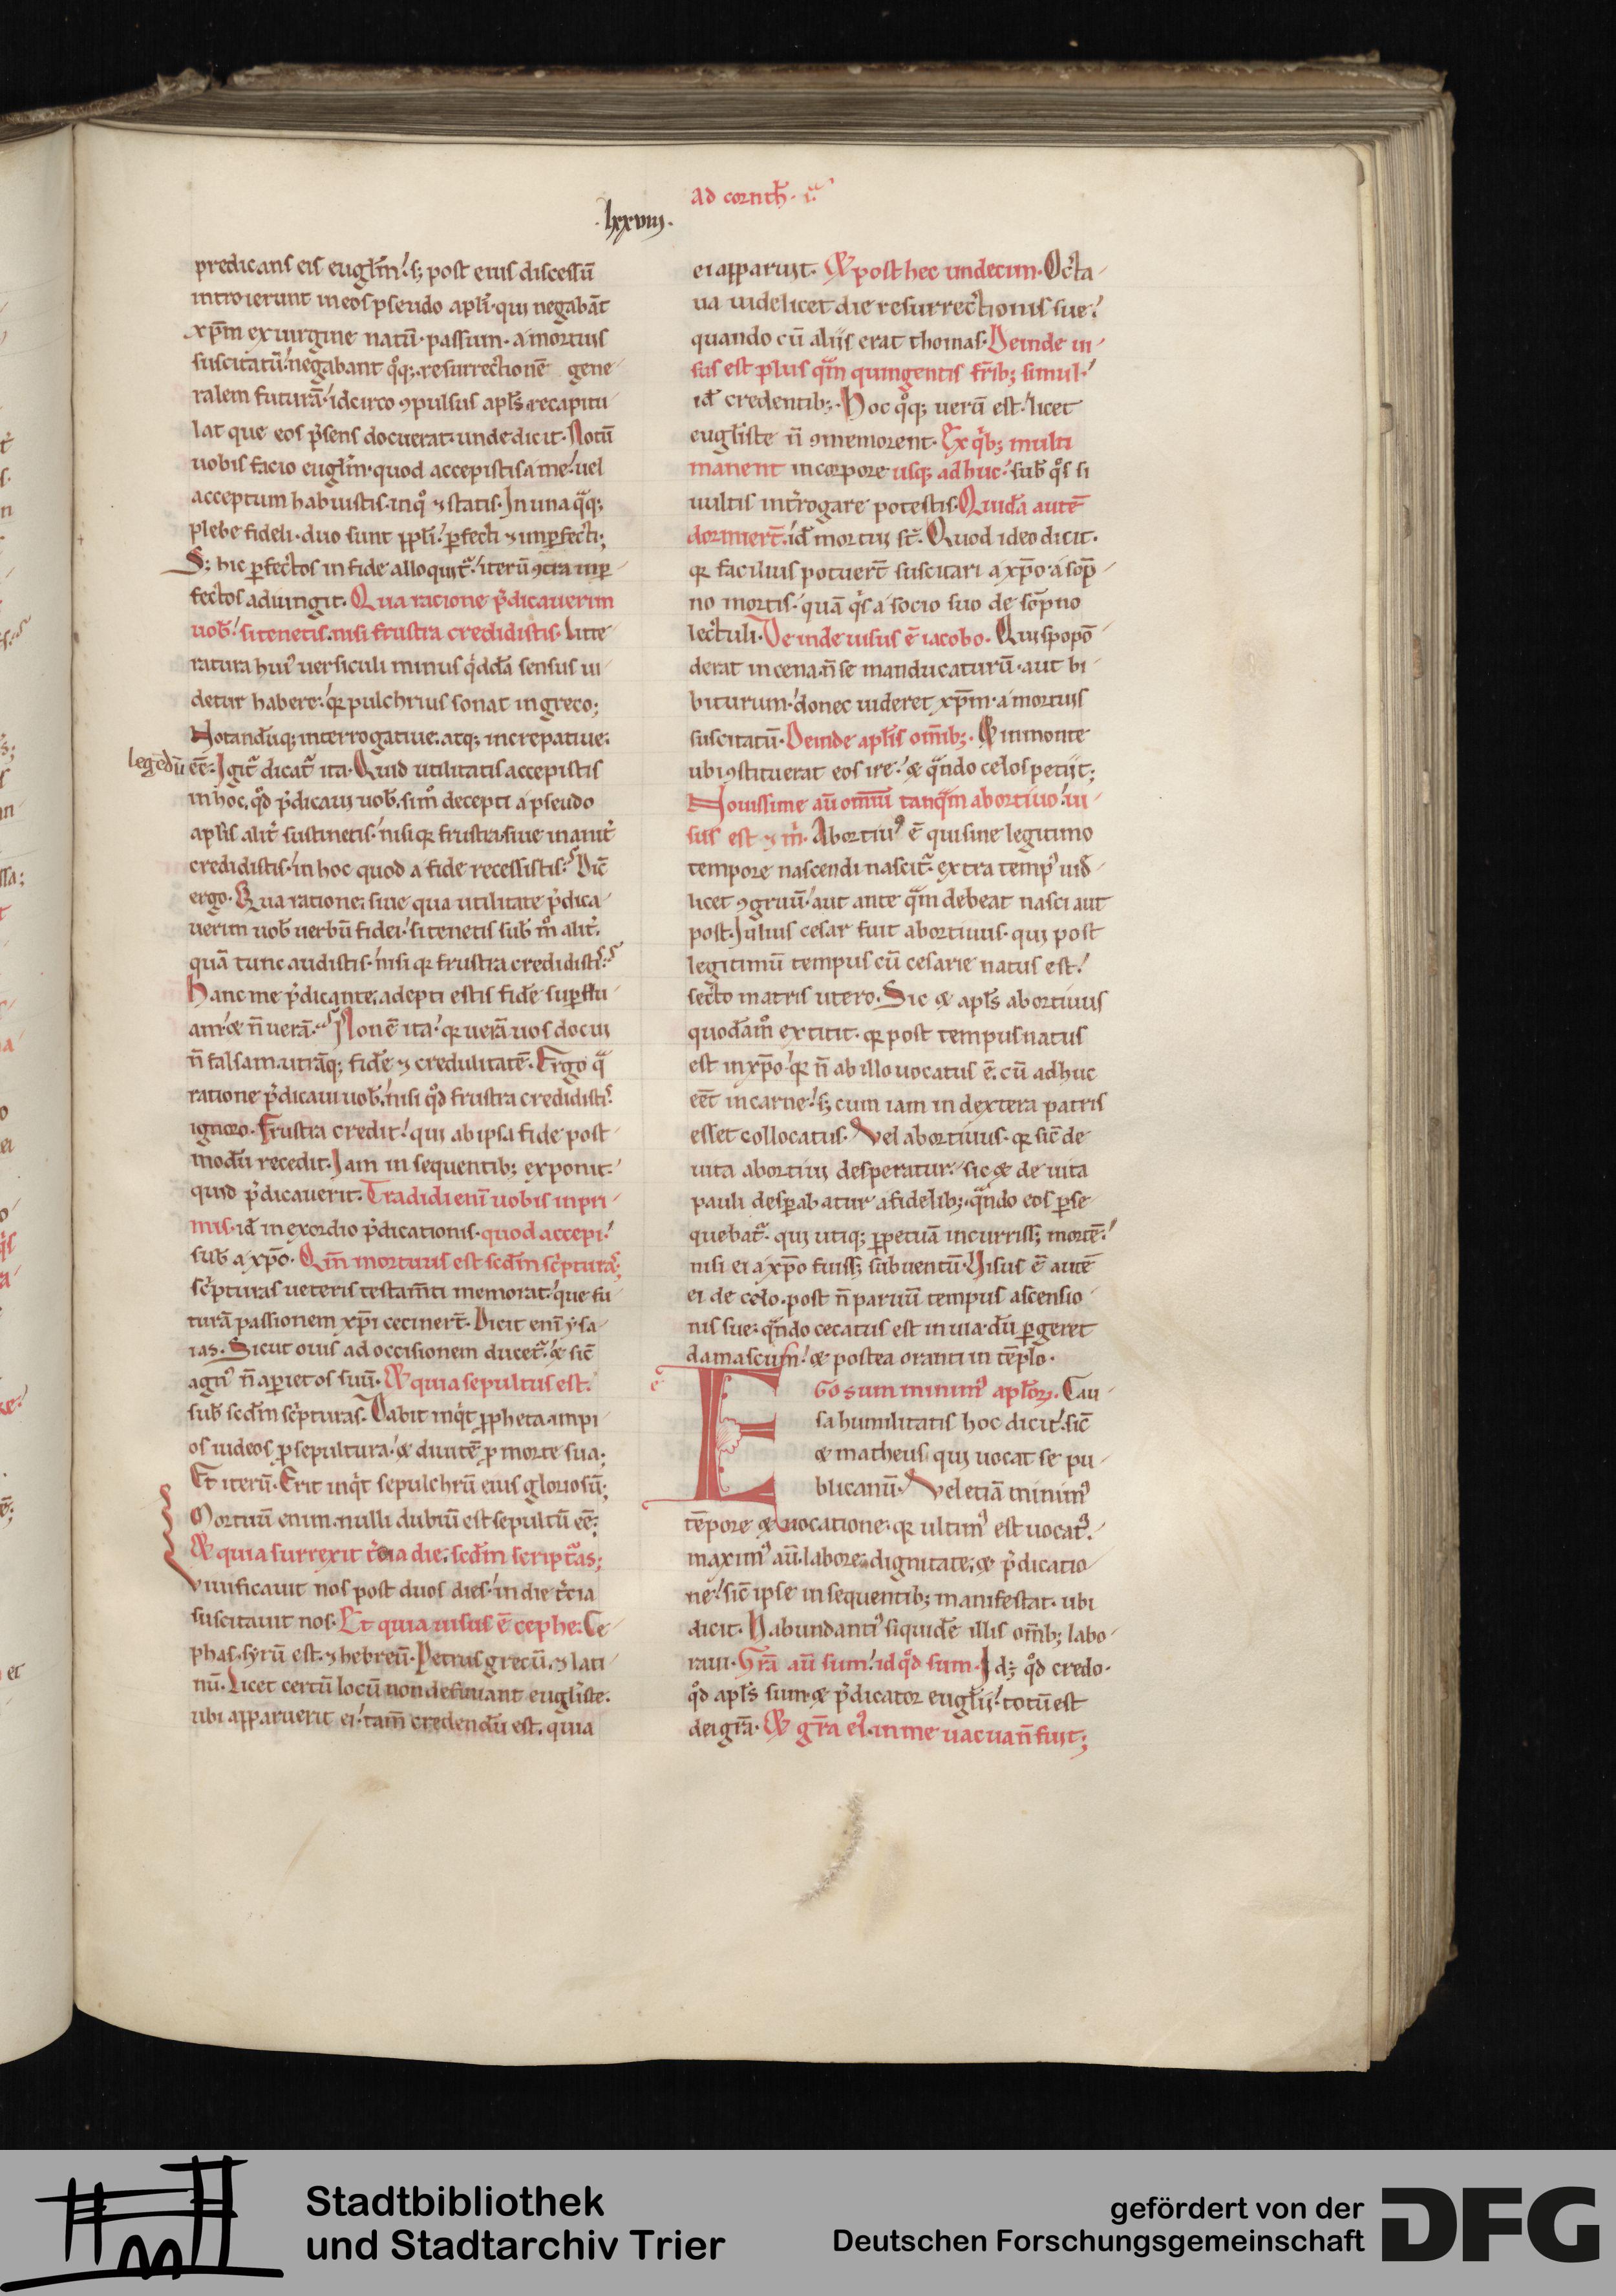 ad corinth̄. i.ᵃ
.lxxviij.
predicans eis eugl̄m! s; post eius discessū
introierunt in eos pseudo apl̄i. qui negabāt
xp̄m ex uirgine natū. passum. a mortuis
suscitatū! negabant qͦq;. resurrectionē gene-
ralem futurā! idcirco ꝯpulsus apl̄s recapitu-
lat que eos p̄sens docuerat. unde dicit. Notū
uobis facio eugl̄m. quod accepistis a me! uel
acceptum habuistis. in qͦ ⁊ statis. In una qᵃq;
plebe fideli. duo sunt ppl̄i! ꝑfecti ⁊ imꝑfecti;
S; hic ꝑfectos in fide alloquit᷑! iterū ꝯtra imꝑ-
fectos adiungit. Qua ratione p̄dicauerim
uob̄! si tenetis. nisi frustra credidistis. Litte-
ratura hui᷒ uersiculi minus qͥddā sensus ui-
detur habere! qꝛ pulchrius sonat in greco;
Notandūq; interrogatiue. atq; increpatiue.
legēdū
eē. Igit᷑ dicat᷑ ita. Quid utilitatis accepistis
in hoc, qͦd p̄dicaui uob̄. si mͦ decepti a pseudo
apl̄is alit᷑ sustinetis. nisi qꝛ frustra. siue inanit᷑
credidistis. in hoc quod a fide recessistis? Dic̄
ergo. Qua ratione, siue qua utilitate p̄dica-
uerim uob̄ uerbū fidei! si tenetis sub̄ mͦ alit᷑.
quā tunc audistis. nisi qꝛ frustra credidistis?
Hanc me p̄dicante, adepti estis fidē suꝑflu-
am! & n̄ uerā? Non ē ita! qꝛ uerā uos docui
n̄ falsam. utrāq; fidē ⁊ credulitatē. Ergo qᵃ
ratione p̄dicaui uob̄, nisi qͦd frustra credidistis
ignoro. Frustra credit! qui ab ipsa fide post-
modū recedit. Iam in sequentib; exponit.
quid p̄dicauerit. Tradidi eni uobis in pri-
mis. id̄ in exordio p̄dicationis. quod accepi!
sub̄ a xp̄o. Qm̄ mortuus est scdm̄ scͥpturas;
scͥpturas ueteris testam̄ti memorat! que fu-
turā passionem xp̄i cecinert̄. Dicit eni ysa-
ias. Sicut ouis ad occisionem ducet᷑. & sic̄
agn᷒ n̄ aperiet os suū. & quia sepultus est.
sub̄ scdm̄ scͥpturas. Dabit inqͥt ꝓpheta. impi-
os iudeos ꝑ sepultura! & diuitē ꝑ morte sua;
Et iterū. Erit inqͥt sepulchrū eius gloriosū;
Mortuū enim. nulli dubiū est sepultū eē;
& quia surrexit t᷑cia die, scdm̄ scriptᵃs;
Viuificauit nos post duos dies! in die t᷑cia
suscitauit nos. Et quia uisus ē cephe. Ce-
phas, syrū est. ⁊ hebreū. Petrus grecū, ⁊ lati-
nū. Licet certū locū non definiant eugl̄iste.
ubi apparuerit ei! tam̄ credendū est. quia
ei apparuit. & post hec undecim. Octa-
ua uidelicet die resurrectionis sue!
quando cū aliis erat thomas. Deinde ui-
sus est plus qᵃm quingentis fr̄ib; simul!
id̄ credentib;. Hoc qͦq; uerū est! licet
eugl̄iste n̄ ꝯmemorent. Ex qͥb; multi
manent in corpore usq; ad huc! sub̄ qͦs si
uultis int᷑rogare potestis. Quidā autē
dormiert̄. id̄ mortui st̄. Quod ideo dicit.
qꝛ facilius potuert̄ suscitari a xp̄o a sop̄-
no mortis. quā qͥs a socio suo de sop̄no
lectuli. Deinde uisus ē iacobo. Qui spopō-
derat in cena. n̄ se manducaturū. aut bi-
biturum. donec uideret xp̄m. a mortuis
suscitatū. Deinde apl̄is om̄ib;. & in monte
ubi ꝯstituerat eos ire! & qᵃndo celos petiit;
Nouissime aū omniū tanqᵃm abortiuo! ui-
sus est ⁊ m̄. Abortiu᷒ ē qui sine legitimo
tempore nascendi nascit᷑. extra temp᷒ uid̄-
licet ꝯgruū! aut ante qᵃm debeat nasci aut
post. Iulius cesar fuit abortiuus. qui post
legitimū tempus cū cesarie natus est!
secto matris utero. Sic & apl̄s abortiuus
quodāmͦ extitit. qꝛ post tempus natus
est in xp̄o! qꝛ n̄ ab illo uocatus ē. cū adhuc
eēt in carne! s; cum iam in dextera patris
esset collocatus. Vel abortiuus. qꝛ sic̄ de
uita abortiui desperatur! sic & de uita
pauli desꝑabatur a fidelib;. qᵃndo eos ꝑse-
quebat᷑. qui utiq; ꝑpetuā incurriss; mortē!
nisi ei a xp̄o fuiss; subuentū. Visus ē autē
ei de celo. post n̄ paruū tempus ascensio-
nis sue. qᵃndo cecatus est in uia. dū ꝑgeret
damascum! & postea oranti in tēplo.
e
EGo sum minim᷒ apl̄oꝝ. Cau-
sa humilitatis hoc dicit! sic̄
& matheus qui uocat se pu-
blicanū. Vel etiā minim᷒
tēpore & uocatione. qꝛ ultim᷒ est uocat᷒.
maxim᷒ aū. labore. dignitate, & p̄dicatio-
ne! sic̄ ipse in sequentib; manifestat. ubi
dicit. Habundanti᷒ siquidē illis om̄ib; labo-
raui. Gr̄a aū sum! id qͦd sum. Id; qͦd credo.
qͦd apl̄s sum. & p̄dicator eugl̄ii! totū est
dei gr̄a. & gr̄a ei᷒. in me uacua n̄ fuit;
Stadtbibliothek
und Stadtarchiv Trier
gefördert von der
Deutschen Forschungsgemeinschaft
DFG